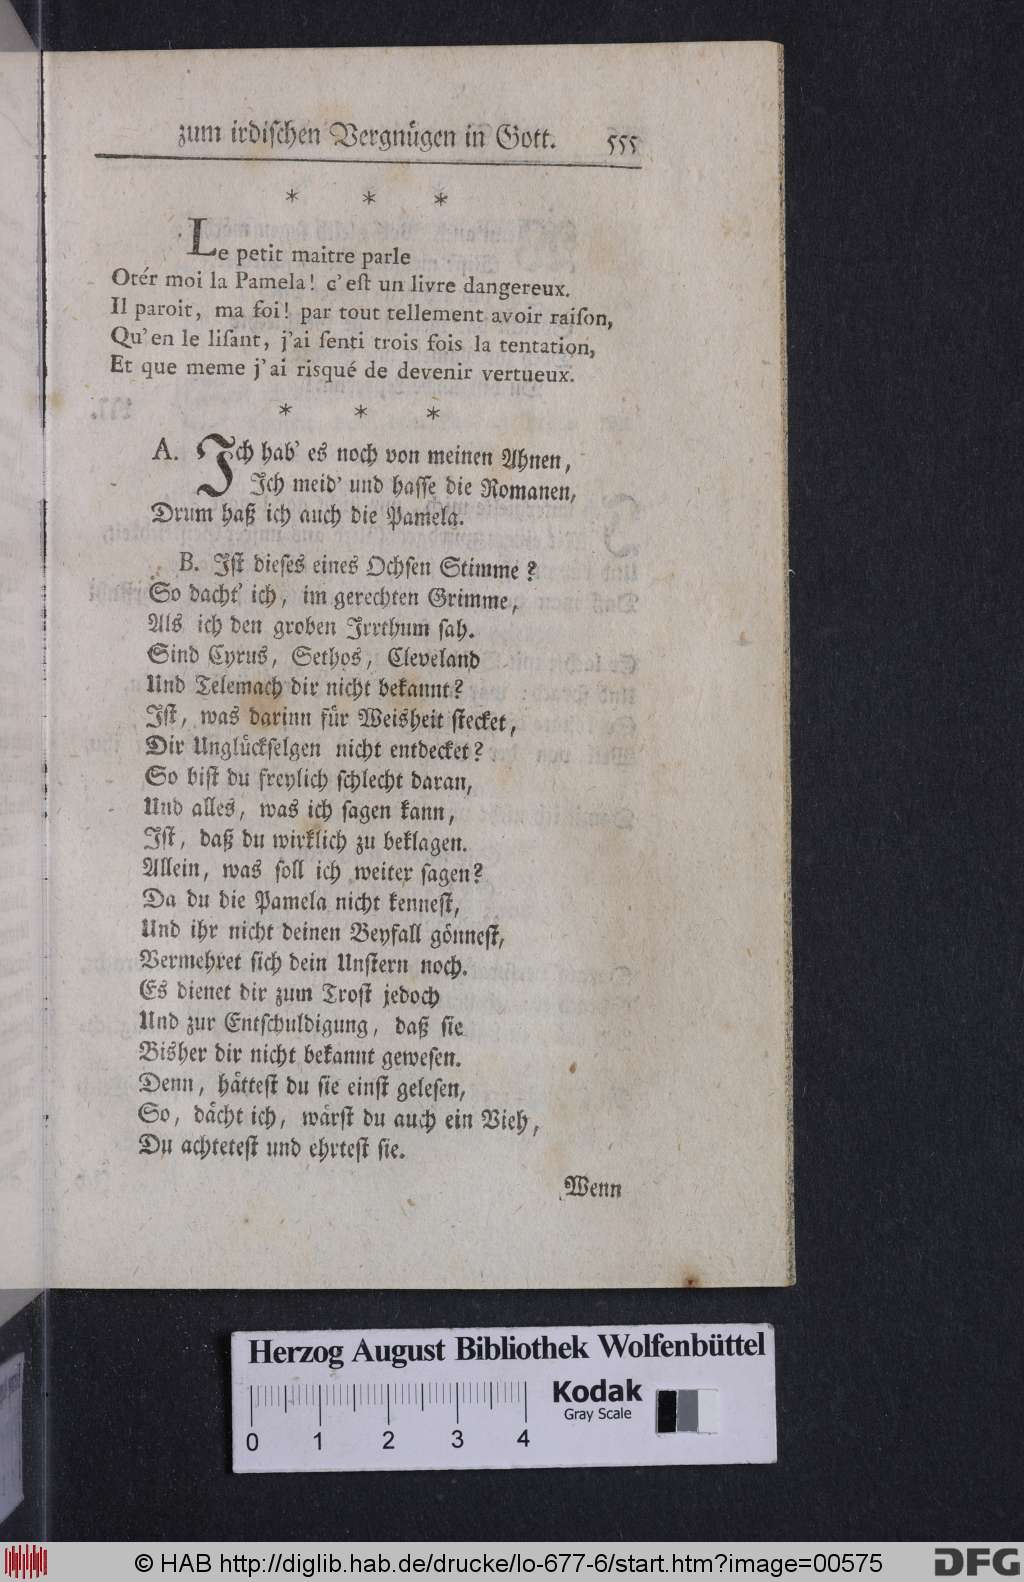 zum irdischen Vergnügen in Gott. 555
* * *
Le petit maitre parle
Otér moi la Pamela! c'est un livre dangereux.
Il paroit, ma foi! par tout tellement avoir raison,
Qu'en le lisant, j'ai senti trois fois la tentation,
Et que meme j'ai risqué de devenir vertueux.
* * *
A. Ich hab' es noch von meinen Ahnen,
Ich meid' und hasse die Romanen,
Drum haß ich auch die Pamela.
B. Ist dieses eines Ochsen Stimme?
So dacht' ich, im gerechten Grimme,
Als ich den groben Irrthum sah.
Sind Cyrus, Sethos, Cleveland
Und Telemach dir nicht bekannt?
Ist, was darinn für Weisheit stecket,
Dir Unglückselgen nicht entdecket?
So bist du freylich schlecht daran,
Und alles, was ich sagen kann,
Ist, daß du wirklich zu beklagen.
Allein, was soll ich weiter sagen?
Da du die Pamela nicht kennest,
Und ihr nicht deinen Beyfall gönnest,
Vermehret sich dein Unstern noch.
Es dienet dir zum Trost jedoch
Und zur Entschuldigung, daß sie
Bisher dir nicht bekannt gewesen.
Denn, hättest du sie einst gelesen,
So, dächt ich, wärst du auch ein Vieh,
Du achtetest und ehrtest sie.
Wenn
Herzog August Bibliothek Wolfenbüttel
Kodak
Gray Scale
0 1 2 3 4
© HAB http://diglib.hab.de/drucke/lo-677-6/start.htm?image=00575
DFG